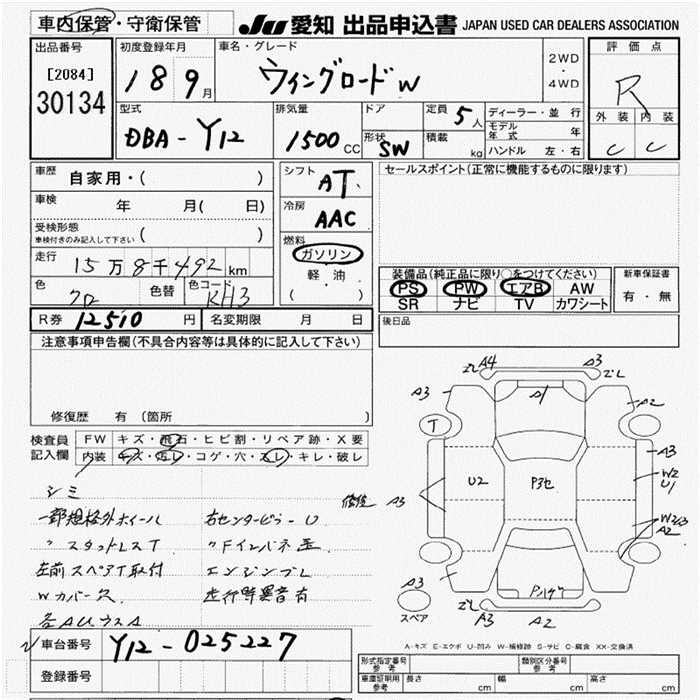 車内保管・守衛保管
JU 愛知 出品申込書 JAPAN USED CAR DEALERS ASSOCIATION
出品番号
[2084]
30134
初度登録年月
18 9月
車名・グレード
ウィングロード W
2WD
・
4WD
評価点
R
外装 内装
C C
型式
DBA-Y12
排気量
1500 CC
ドア
形状
SW
定員 5人
積載 kg
ディーラー・並行
モデル年式 年
ハンドル 左・右
車歴
自家用・( )
車検 年 月( 日)
受検形態
車検付きのみ記入して下さい ( )
走行
15万8千492km
色
クロ
色替
色コード
KH3
シフト
AT
冷房
AAC
燃料
ガソリン
軽・油
( )
セールスポイント(正常に機能するものに限ります)
装備品(純正品に限り○をつけてください)
PS PW エアB AW
SR ナビ TV カワシート
新車保証書
有・無
後日品
R券 12510 円
名変期限 月 日
注意事項申告欄(不具合内容等は具体的に記入して下さい)
修復歴 有(箇所
検査員
記入欄
FW キズ・飛石・ヒビ割・リペア跡・X要
内装 キズ・汚レ・コゲ・穴・スレ・キレ・破レ
シミ
一部規格外ホイール
〃 スタットレスT
左前スペアT取付
Wカバー欠
各AUウスA
右センターピラーU
エンジンフL
走行時異音有
車台番号
Y12-025227
登録番号
A4
A3
A3
A1
A2
T
A3
U2
P3セ
W2
U1
修復 A3
W2,3
A2
A3
スペア
A3
A2
A-キズ E-エクボ U-凹み W-補修跡 S-サビ C-腐食 XX-交換済
形式指定番号
参考
類別区分番号
参考
車庫証明用
参考
長さ cm
幅 cm
高さ cm